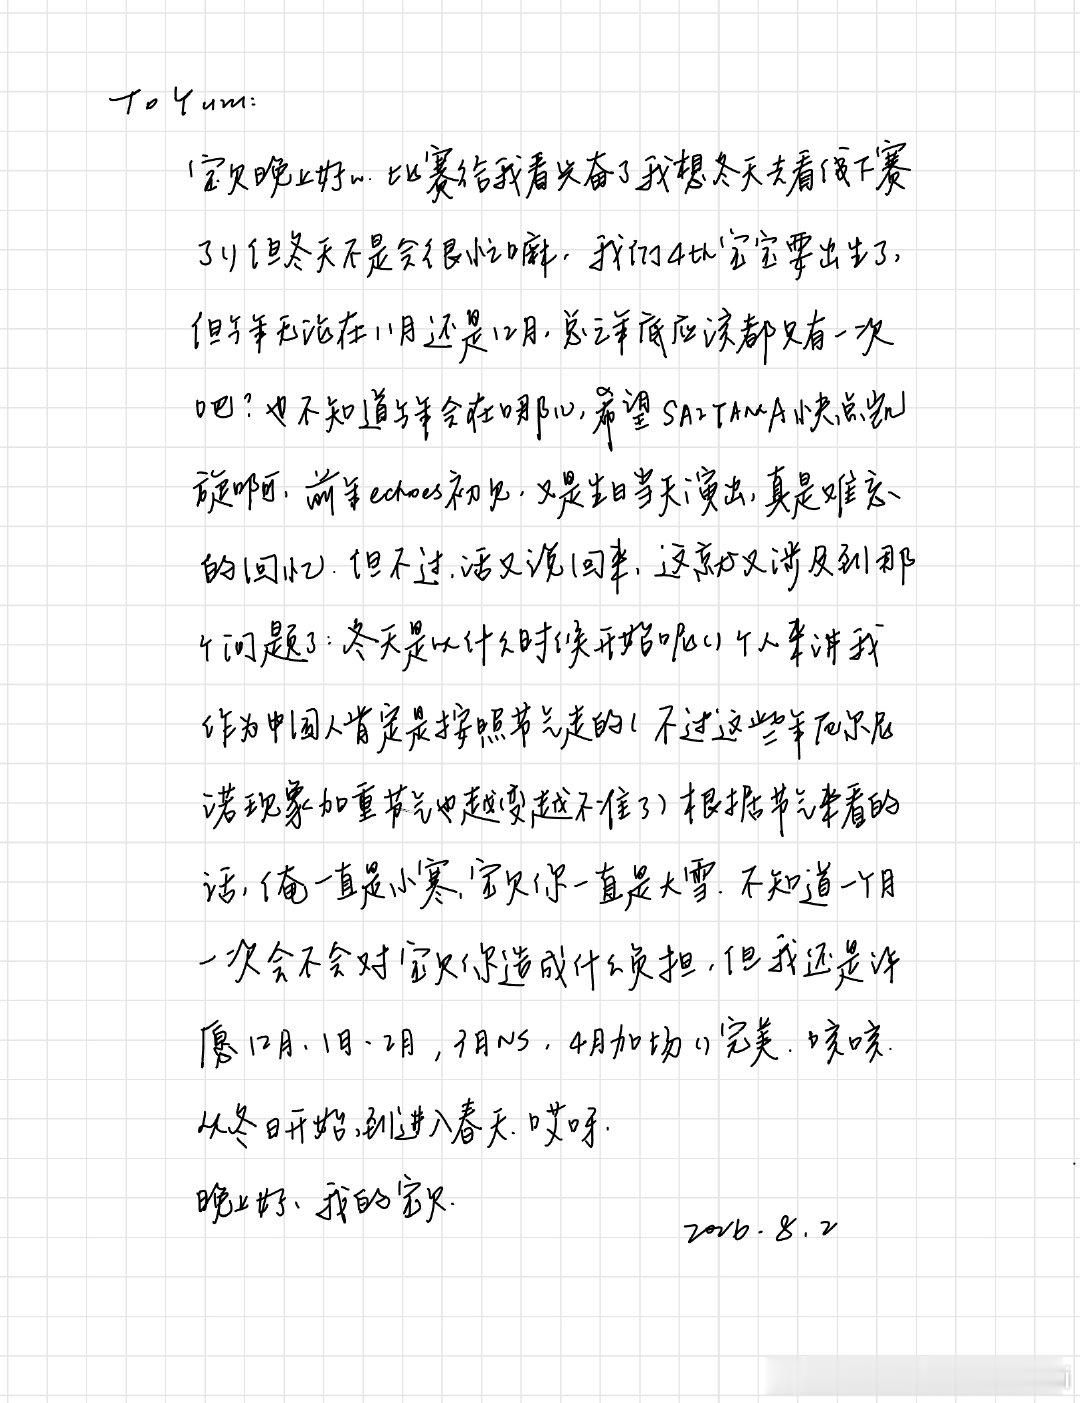 To Yum:
宝贝晚上好w. 比赛给我看兴奋了我想冬天去看线下赛
了()但冬天不是会很忙嘛. 我们4th宝宝要出生了,
但今年无论在11月还是12月, 总之年底应该都只有一次
吧? 也不知道今年会在哪儿, 希望SAITAMA快点凯
旋啊, 前年echoes初见, 又是生日当天演出, 真是难忘
的回忆. 但不过, 话又说回来, 这就又涉及到那
个问题了: 冬天是从什么时候开始呢() 个人来讲我
作为中国人肯定是按照节气走的( 不过这些年厄尔尼
诺现象加重节气也越变越不准了) 根据节气来看的
话, 俺一直是小寒, 宝贝你一直是大雪. 不知道一个月
一次会不会对宝贝你造成什么负担, 但我还是许
愿12月、1月、2月, 3月NS, 4月加场()完美. 咳咳.
从冬日开始, 到进入春天. 哎呀.
晚上好、我的宝贝.
2026.8.2